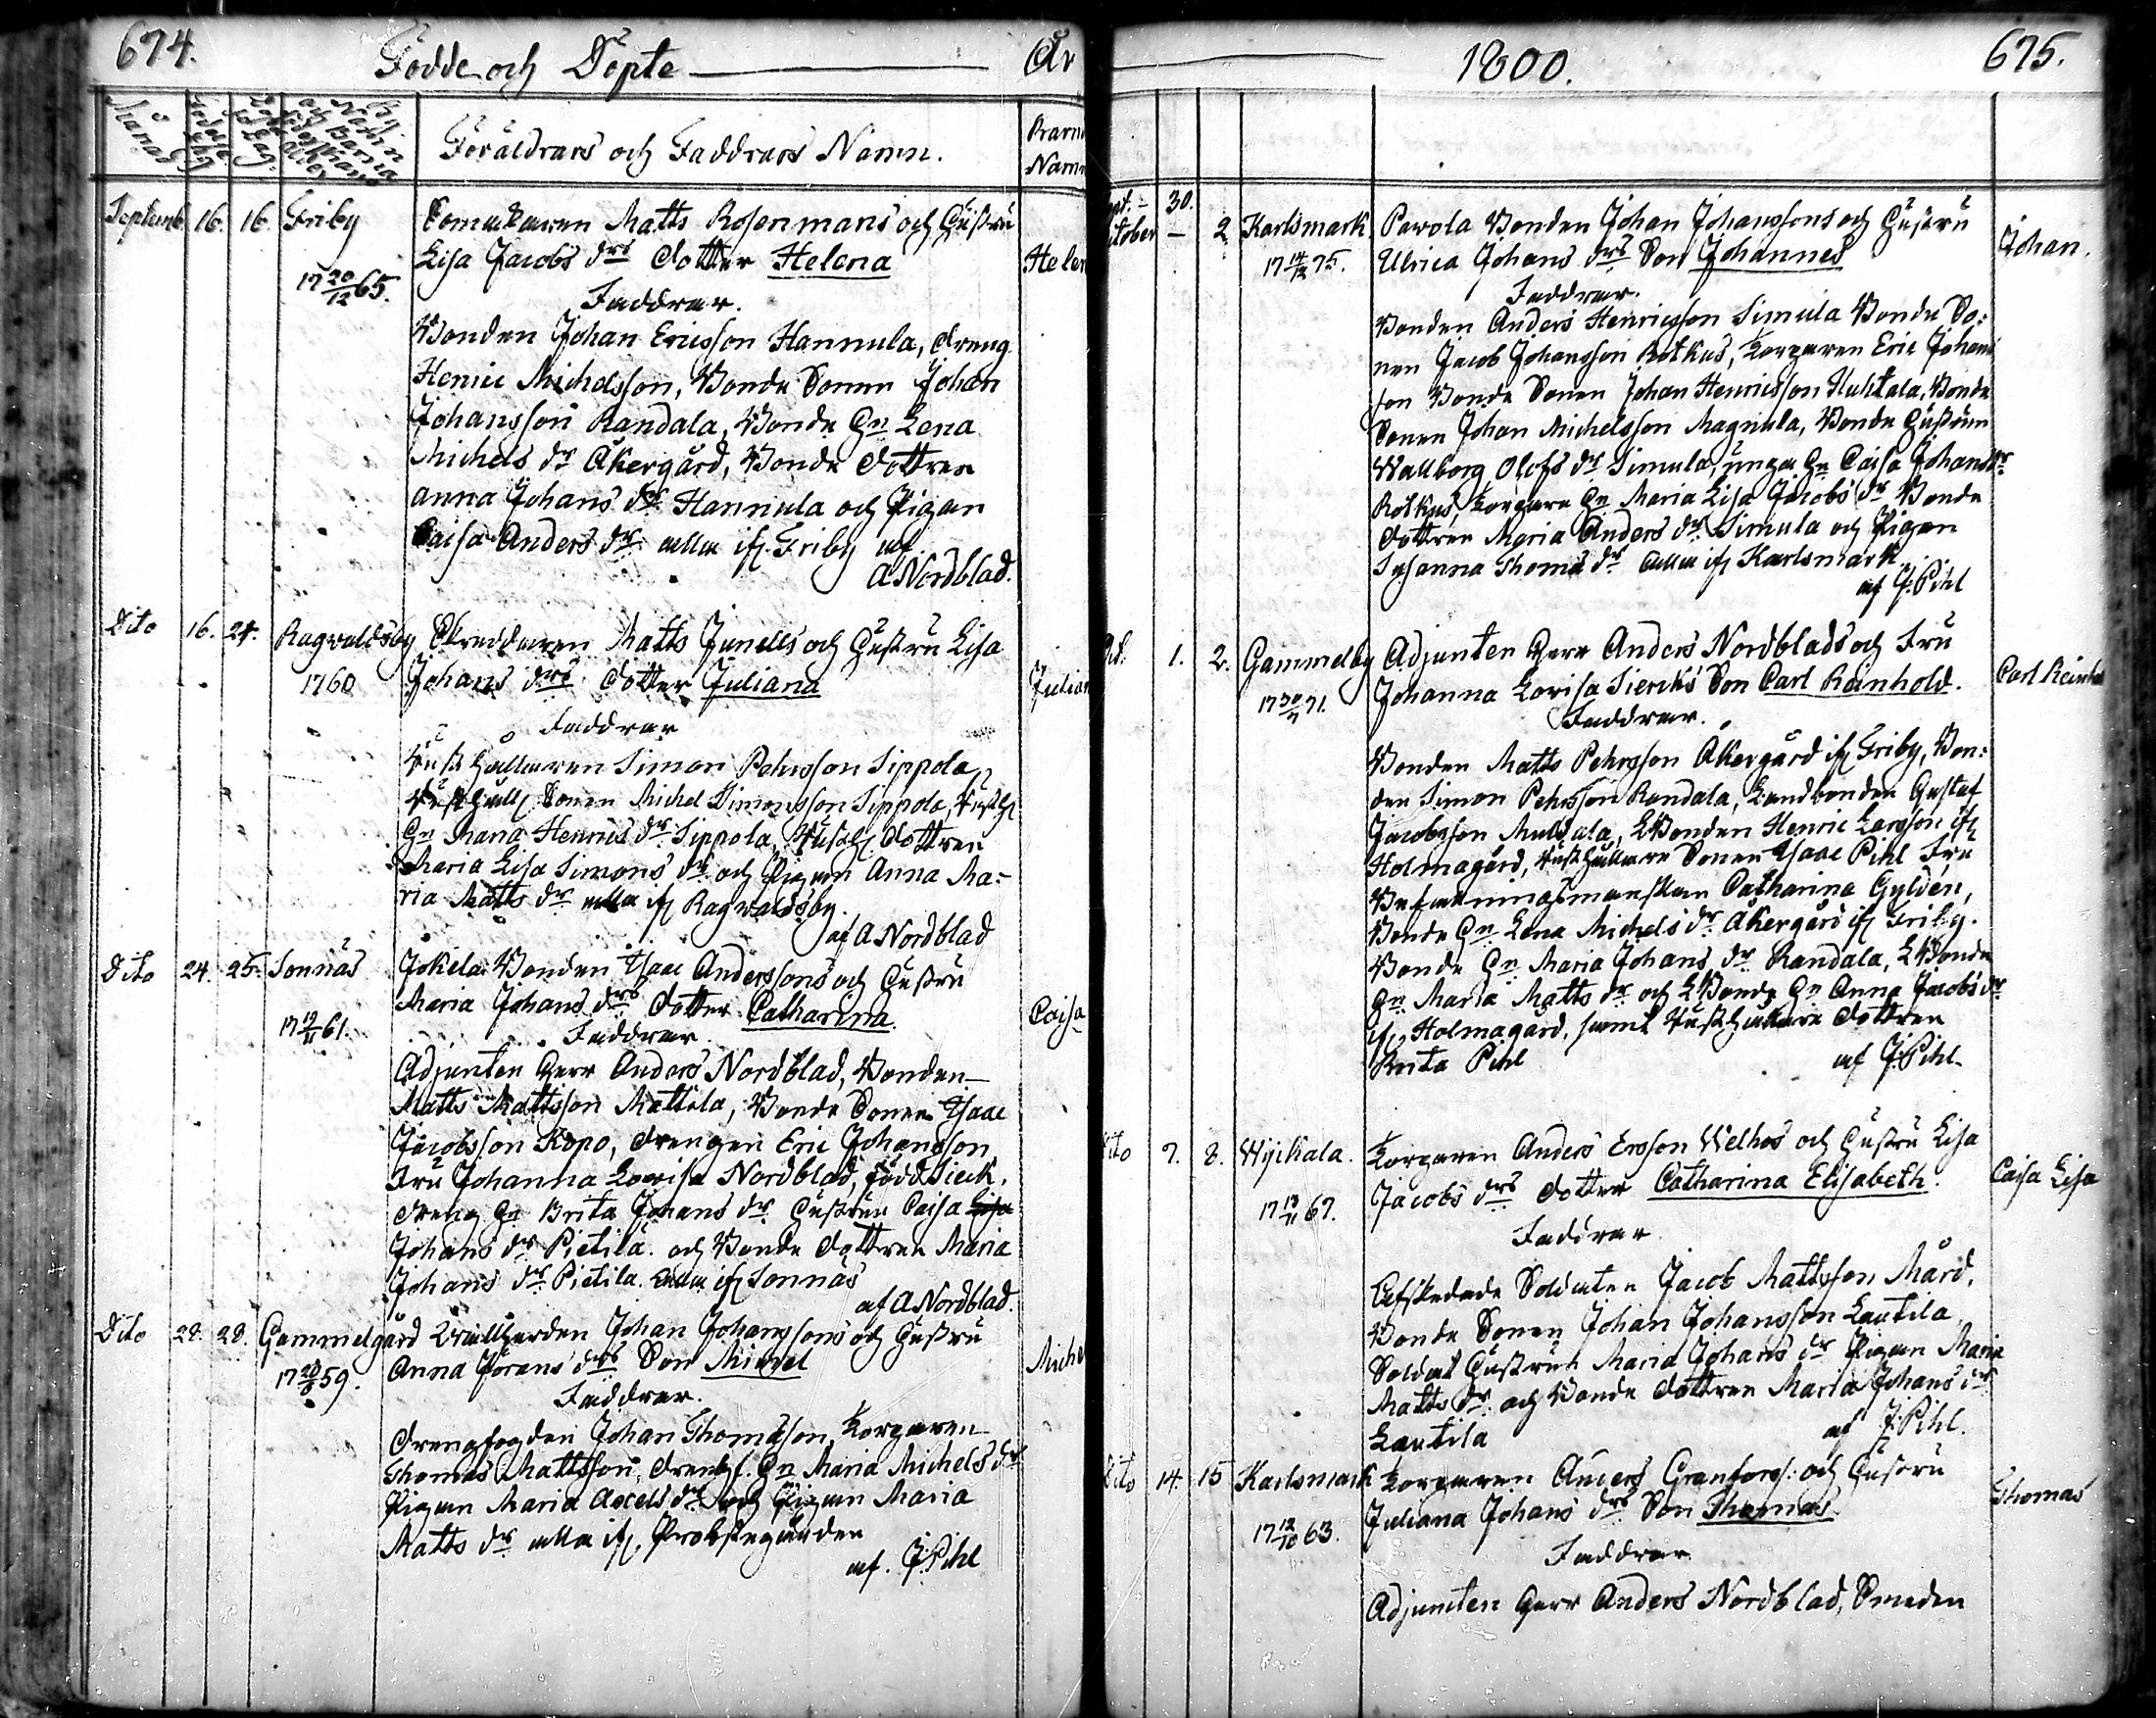 674.
Födde och Döpte
År
Månad
Föräldrars och Faddrars Namn.
Barn
Namn
Septemb 16. 16. Friby Matts Rosenmans och Hustru
Lisa Jacobs drs Dotter Helena
Helen
17 20/12 65.
Faddrar.
Bonden Johan Ericsson Hannula, dreng
Henric Michelsson, Bonde Sonen Johan
Johansson Randala, Bonde Hn Lena
Michels dr Åkergård, Bonde dottren
Anna Johans dr Hannula och Pigan
Caisa Anders dr alla ifr. Friby af
A Nordblad.
Dito 16. 21. Ragvaldsby Skreddaren Matts Junells och Hustru Lisa
1760
Johans drs Dotter Juliana
Julian
Faddrar
Rusthållaren Simon Pehrsson Sippola
Rusthåll Sonen Michel Simonsson Sippola, Rusth
Hn Maria Henrics dr Sippola, Rusth dottren
Maria Lisa Simons dr och Pigan Anna Ma-
ria Matts dr alla ifr Ragvaldsby.
af A Nordblad
Dito 24. 25. Sonnäs Jokela Bonden Isaac Anderssons och Hustru
Maria Johans drs Dotter Catharina.
Caisa
17 19/11 61.
Faddrar.
Adjunten Herr Anders Nordblad, Bonden
Matts Mattsson Mattila, Bonde Sonen Isaac
Jacobsson Kopo, drengen Eric Johansson
Fru Johanna Lovisa Nordblad, född Sierk.
dreng Hn Brita Johans dr Hustrun Caisa Lisa
Johans dr Pietilä. och Bonde dottren Maria
Johans dr Pietila. alla ifr Sonnäs
af A Nordblad.
Dito 28. 28. Gammelgård Johan Johanssons och Hustru
Anna Jörans drs Son Michel
Miche
17 59.
Faddrar.
drengfogden Johan Thomasson, Torparen
Thomas Mattsson, Hn Maria Michels dr
Pigan Maria Axels dr och Pigan Maria
Matts dr alla ifr. Probstegården
af. J: Pihl
1800.
675.
Sept. - 30.
October - 2. Karlsmark. Pavola Bonden Johan Johanssons och Hustru
Ulrica Johans drs Son Johannes
Johan.
17 75.
Faddrar.
Bonden Anders Henricsson Simula Bonde So:
nen Jacob Johansson Rotkus, Torparen Eric Johans
son Bonde Sonen Johan Henricsson Huhtala, Bonde
Sonen Johan Michelsson Magnula, Bonde Hustrun
Wallborg Olofs dr Simula, unga Hn Caisa Johans dr
Rotkus, Torpare Hn Maria Lisa Jacobs dr Bonde
dottren Maria Anders dr Simula och Pigan
Susanna Thoms dr alla ifr Karlsmark.
af J: Pihl
1. 2. Gammelby Adjunten Herr Anders Nordblads och Fru
Johanna Lovisa Siercks Son Carl Reinhold.
Carl Reinhol
17 30/7 71.
Faddrar.
Bonden Matts Pehrsson Åkergård ifr Friby, Bon:
den Simon Pehrsson Randala, Landbonden Gustaf
Jacobsson Mullsala, LBonden Henric Larsson ifr
Holmagård, Rusthållare Sonen Isaac Pihl Fru
Catharina Gyldén,
Bonde Hn Lena Michels dr Åkergård ifr Friby.
Bonde Hn Maria Johans dr Randala, LBonde
Hn Maria Matts dr och LBonde Hn Anna Jacobs dr
ifr Holmagård, samt Rusthållare dottren
Brita Pihl
af J: Pihl
Dito 7. 8. Wijikala. Torparen Anders Ersson Welhos och Hustru Lisa
Jacobs drs dotter Catharina Elisabeth.
Caisa Lisa
17 13/11 67.
Faddrar
Afskedade Soldaten Jacob Mattsson Mård,
Bonde Sonen Johan Johansson Lautila
Soldat Hustrun Maria Johans dr Pigan Maria
Matts dr och Bonde dottren Maria Johans dr
Lautila
af J: Pihl.
Dito 14. 15 Karlsmark Torparen Anders Granfors: och Hustru
Juliana Johans drs Son Thomas
Thomas
17 12/10 63.
Faddrar
Adjunten Herr Anders Nordblad, Smeden